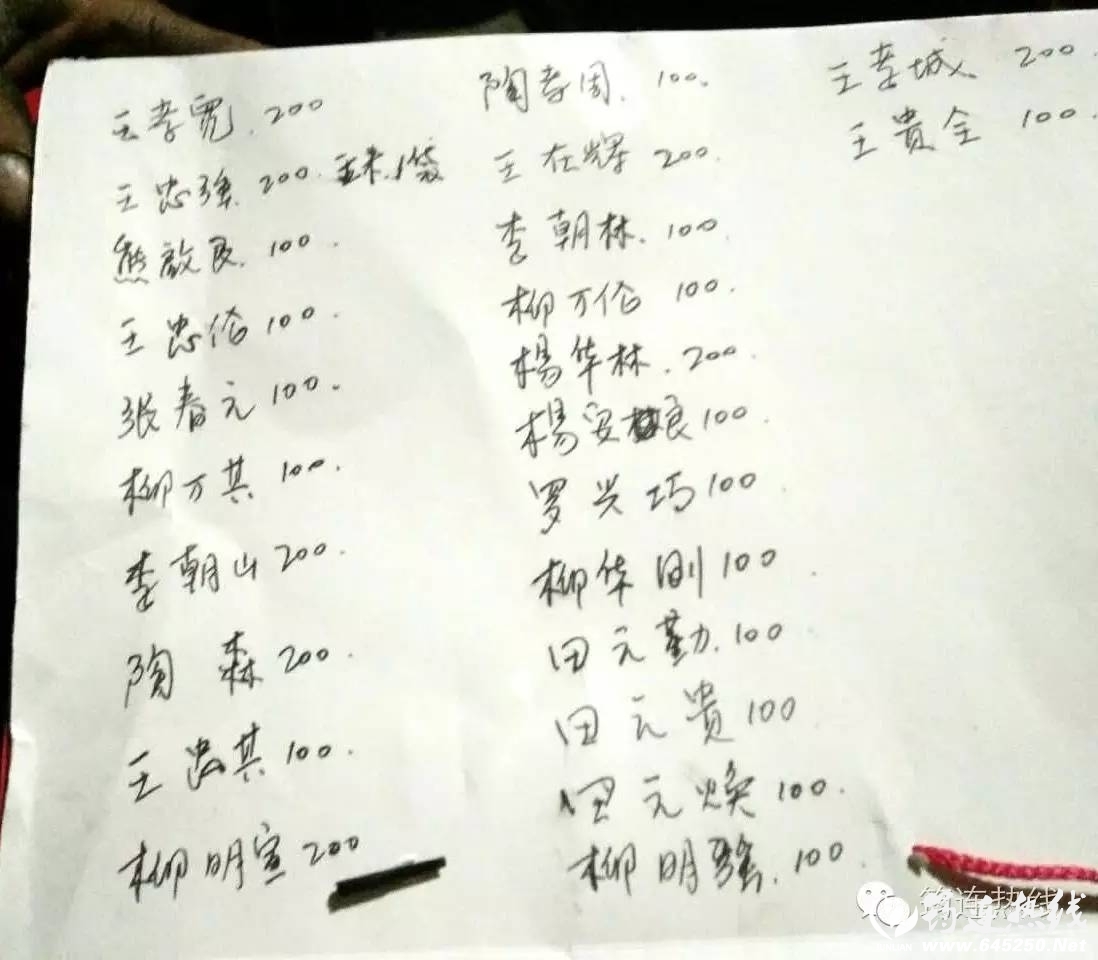 王孝宽.200
王忠强.200.玉米1袋
熊敬良.100.
王忠伦100.
张春元100.
柳万其100.
李朝山200.
陶森200.
王忠其100.
柳明宣200
陶孝周.100.
王在辉200.
李朝林.100.
柳万伦100.
杨华林.200.
杨安良100.
罗兴巧100.
柳华刚100
田元勤.100.
田元贵100
田元焕100.
柳明强.100.
王孝城.200.
王贵全100.
筠连热线
筠连热线
www.645250.Net